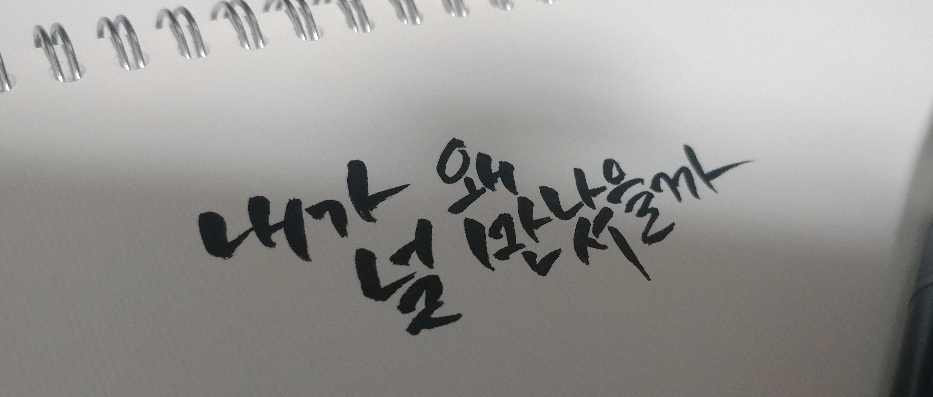 내가 왜
널 만났을까